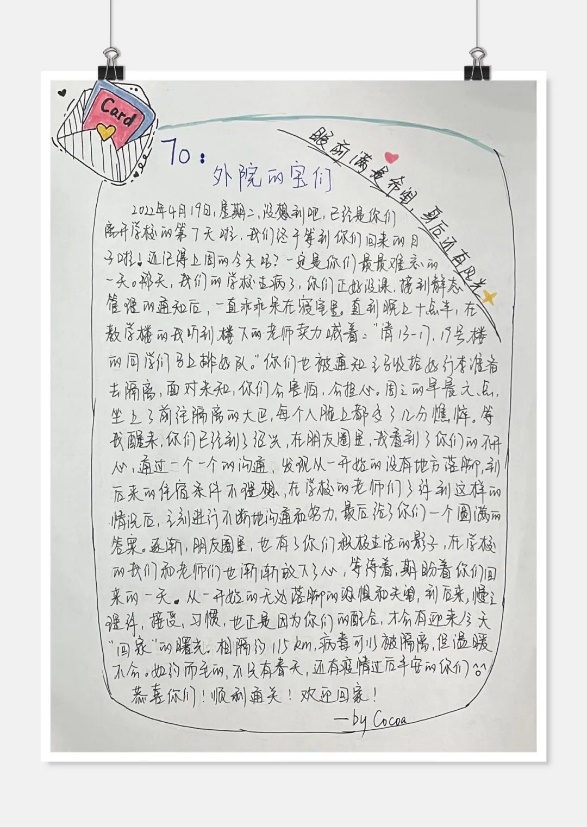 Card
To:
外院的宝们
眼前满是希望,身后还有阳光
2022年4月19日,星期二,没想到吧,已经是你们
离开学校的第7天啦,我们终于等到你们回来的日
子啦!还记得上周的今天吗?一定是你们最最难忘的
一天。那天,我们的学校生病了,你们正好没课,接到静态
管理的通知后,一直乖乖呆在寝室里。直到晚上十点半,在
教学楼的我听到楼下的老师卖力喊着:“请13-17,19号楼
的同学们马上排好队。”你们也被通知立马收拾好行李准备
去隔离,面对未知,你们会害怕,会担心。周三的早晨六点,
坐上了前往隔离的大巴,每个人脸上都多了几分憔悴。等
我醒来,你们已经到了绍兴,在朋友圈里,我看到了你们的不开
心,通过一个一个的沟通,发现从一开始的没有地方落脚,到
后来的住宿条件不理想,在学校的老师们了许到这样的
情况后,立刻进行不断地沟通和努力,最后给了你们一个圆满的
答案。逐渐,朋友圈里,也有了你们积极生活的影子,在学校
的我们和老师们也渐渐放下了心,等待着,期盼着你们回
来的一天。从一开始的无处落脚的恐惧和失望,到后来,慢慢
理解,接受,习惯,也正是因为你们的配合,才会有迎来今天
“回家”的曙光。相隔约115km,病毒可以被隔离,但温暖
不会。如约而至的,不只有春天,还有疫情过后平安的你们
恭喜你们!顺利通关!欢迎回家!
—by Cocoa